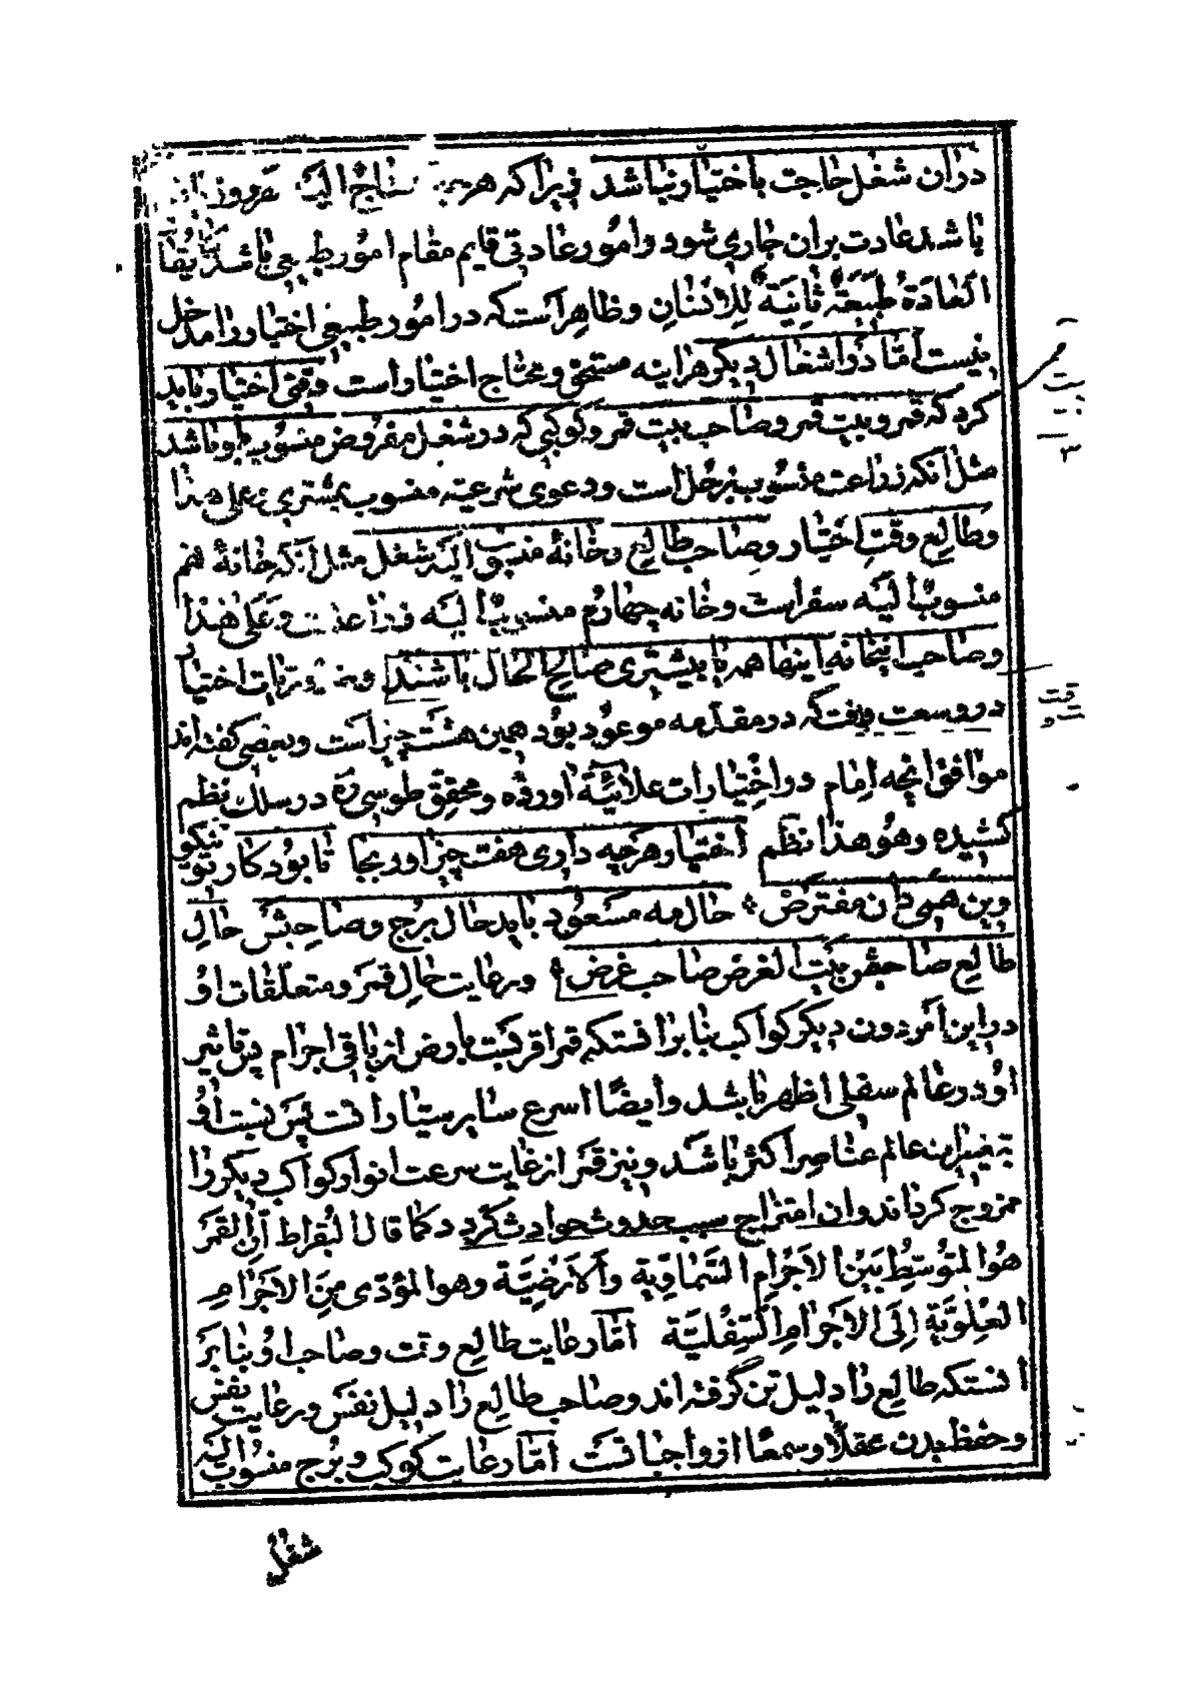 دران شغل حاجت باختیار نباشد زیرا که هر چیز محتاج الیه هر روز
باشد عادت بران جاری شود و امور عادتی قایم مقام امور طبیعی باشد یقال
العادة طبیعة ثانیة للانسان و ظاهر است که در امور طبیعی اختیار را مدخل
نیست اما در اشغال دیگر هر اینه مستحق و محتاج اختیار است وقتی اختیار باید
کرد که قمر و بیت قمر و صاحب بیت قمر و کوکبی که در شغل مفروض منسوب باو باشد
مثل انکه زراعت منسوب بزحل است و دعوی شرعیه منسوب بمشتری و علی هذا
و طالع وقت اختیار و صاحب طالع و خانهٔ منسوب الیه شغل مثل انکه خانهٔ نهم
منسوب الیه سفر است و خانه چهارم منسوب الیه زراعت و علی هذا
و صاحب انخانه اینها همه یا بیشتری صالح الحال باشند و ضروریات اختیار
در وسعت وقت که در مقدمه موعود بود همین هشت چیز است و بعضی گفته اند
موافق انچه امام در اختیارات علائیة اورده و محقق طوسی ره در سلک نظم
کشیده وهو هذا نظم اختیار هرچه داری هفت چیز اور بجا تا بود کار تو نیکو
وین همی دان مفترض حال مه مسعود باید حال برج و صاحبش حال
طالع صاحبش بیت الغرض صاحب غرض و رعایت حال قمر و متعلقات او
در این امر دون دیگر کواکب بنا بر انستکه قمر اقربست بارض از باقی اجرام پس تاثیر
او در عالم سفلی اظهر باشد و ایضا اسرع سایر سیارات است پس نسبت او
بتغییر این عالم عناصر اکثر باشد و نیز قمر از غایت سرعت انوار کواکب دیگر را
ممزوج گرداند و ان امتزاج سبب حدوث حوادث گردد کما قال البقراط ان القمر
هو المتوسط بین الاجرام السماویة والارضیة وهو المؤدی من الاجرام
العلویة الی الاجرام السفلیة اما رعایت طالع وقت و صاحب او بنا بر
انستکه طالع را دلیل تن گرفته اند و صاحب طالع را دلیل نفس و رعایت نفس
و حفظ بدن عقلا و سمعا از واجباتست اما رعایت کوکب و برج منسوب الیه
شغل